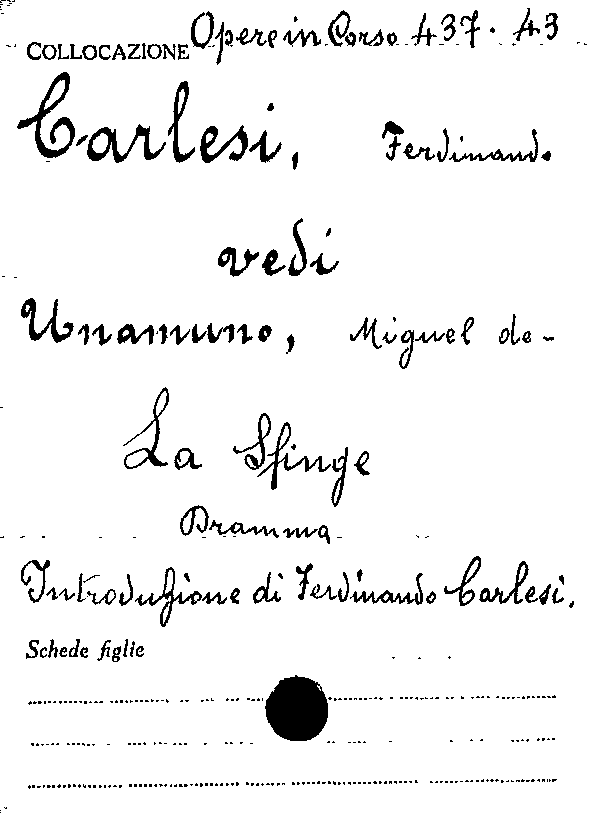 COLLOCAZIONE Opere in Corso 437. 43
Carlesi, Ferdinando
vedi
Unamuno, Miguel de-
La Sfinge
Dramma
Introduzione di Ferdinando Carlesi.
Schede figlie